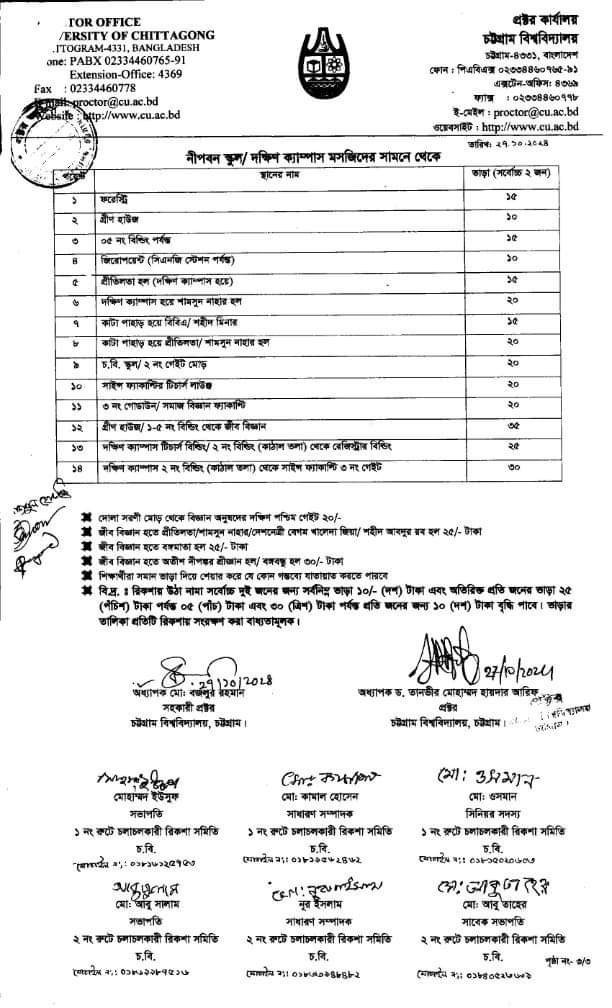 TOR OFFICE
ERSITY OF CHITTAGONG
TTOGRAM-4331, BANGLADESH
one: PABX 02334460765-91
Extension-Office: 4369
Fax : 02334460778
E-mail: proctor@cu.ac.bd
Website : http://www.cu.ac.bd
প্রক্টর কার্যালয়
চট্টগ্রাম বিশ্ববিদ্যালয়
চট্টগ্রাম-৪৩৩১, বাংলাদেশ
ফোন : পিএবিএক্স ০২৩৩৪৪৬০৭৬৫-৯১
এক্সটেন-অফিস: ৪৩৬৯
ফ্যাক্স : ০২৩৩৪৪৬০৭৭৮
ই-মেইল : proctor@cu.ac.bd
ওয়েবসাইট : http://www.cu.ac.bd
তারিখ: ২৭.১০.২০২৪
নীপবন স্কুল/ দক্ষিণ ক্যাম্পাস মসজিদের সামনে থেকে
স্থানের নাম ভাড়া (সর্বোচ্চ ২ জন)
১ ফরেস্ট্রি ১৫
২ গ্রীণ হাউজ ১০
৩ ০৫ নং বিল্ডিং পর্যন্ত ১৫
৪ জিরোপয়েন্ট (সিএনজি স্টেশন পর্যন্ত) ১০
৫ প্রীতিলতা হল (দক্ষিণ ক্যাম্পাস হয়ে) ১৫
৬ দক্ষিণ ক্যাম্পাস হয়ে শামসুন নাহার হল ২০
৭ কাটা পাহাড় হয়ে বিবিএ/ শহীদ মিনার ১৫
৮ কাটা পাহাড় হয়ে প্রীতিলতা/ শামসুন নাহার হল ২০
৯ চ.বি. স্কুল/ ২ নং গেইট মোড় ২০
১০ সাইন্স ফ্যাকাল্টির টিচার্স লাউঞ্জ ২০
১১ ৩ নং গোডাউন/ সমাজ বিজ্ঞান ফ্যাকাল্টি ২০
১২ গ্রীণ হাউজ/ ১-৫ নং বিল্ডিং থেকে জীব বিজ্ঞান ৩৫
১৩ দক্ষিণ ক্যাম্পাস টিচার্স বিল্ডিং/ ২ নং বিল্ডিং (কাঠাল তলা) থেকে রেজিস্ট্রার বিল্ডিং ২৫
১৪ দক্ষিণ ক্যাম্পাস ২ নং বিল্ডিং (কাঠাল তলা) থেকে সাইন্স ফ্যাকাল্টি ৩ নং গেইট ৩০
দোলা সরণী মোড় থেকে বিজ্ঞান অনুষদের দক্ষিণ পশ্চিম গেইট ২০/-
জীব বিজ্ঞান হতে প্রীতিলতা/শামসুন নাহার/দেশনেত্রী বেগম খালেদা জিয়া/ শহীদ আবদুর রব হল ২৫/- টাকা
জীব বিজ্ঞান হতে বঙ্গমাতা হল ২৫/- টাকা
জীব বিজ্ঞান হতে অতীশ দীপঙ্কর শ্রীজ্ঞান হল/ বঙ্গবন্ধু হল ৩০/- টাকা
শিক্ষার্থীরা সমান ভাড়া দিয়ে শেয়ার করে যে কোন গন্তব্যে যাতায়াত করতে পারবে
বি.দ্র. : রিকশায় উঠা নামা সর্বোচ্চ দুই জনের জন্য সর্বনিম্ন ভাড়া ১০/- (দশ) টাকা এবং অতিরিক্ত প্রতি জনের জন্য ভাড়া ২৫
(পঁচিশ) টাকা পর্যন্ত ০৫ (পাঁচ) টাকা এবং ৩০ (ত্রিশ) টাকা পর্যন্ত প্রতি জনের জন্য ১০ (দশ) টাকা বৃদ্ধি পাবে। ভাড়ার
তালিকা প্রতিটি রিকশায় সংরক্ষণ করা বাধ্যতামূলক।
২৭/১০/২০২৪
অধ্যাপক মো: বজলুর রহমান
সহকারী প্রক্টর
চট্টগ্রাম বিশ্ববিদ্যালয়, চট্টগ্রাম।
27/10/2024
অধ্যাপক ড. তানভীর মোহাম্মদ হায়দার আরিফ
প্রক্টর
চট্টগ্রাম বিশ্ববিদ্যালয়, চট্টগ্রাম।
মোহাম্মদ ইউসুফ
সভাপতি
১ নং রুটে চলাচলকারী রিকশা সমিতি
চ.বি.
মো: কামাল হোসেন
সাধারণ সম্পাদক
১ নং রুটে চলাচলকারী রিকশা সমিতি
চ.বি.
মো: ওসমান
মো: ওসমান
সিনিয়র সদস্য
১ নং রুটে চলাচলকারী রিকশা সমিতি
চ.বি.
মো: আবু সালাম
সভাপতি
২ নং রুটে চলাচলকারী রিকশা সমিতি
চ.বি.
নূর ইসলাম
সাধারণ সম্পাদক
২ নং রুটে চলাচলকারী রিকশা সমিতি
চ.বি.
মো: আবু তাহের
সাবেক সভাপতি
২ নং রুটে চলাচলকারী রিকশা সমিতি
চ.বি.
পৃষ্ঠা নং- ৩/৩